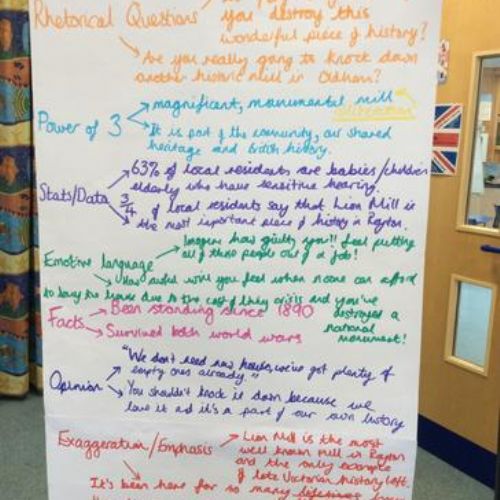 Rhetorical Questions
you destroy this
wonderful piece of history?
Are you really going to knock down
another historic mill in Oldham?
Power of 3
magnificent, monumental mill
alliteration
It is part of the community, our shared
heritage and British history.
Stats/Data
63% of local residents are babies/children
elderly who have sensitive hearing.
3/4 of local residents say that Lion Mill is
the most important piece of history in Royton.
Emotive language
Imagine how guilty you'll feel putting
all of those people out of a job!
How awful will you feel when noone can afford
to buy the house due to the cost of living crisis and you've
destroyed a
national
monument!
Facts
Been standing since 1890
Survived both world wars
Opinion
"We don't need new houses, we've got plenty of
empty ones already."
You shouldn't knock it down because we
love it and it's a part of our own history
Exaggeration/Emphasis
Lion Mill is the most
well known mill in Royton
and the only example
of late Victorian history left.
It's been here for so many